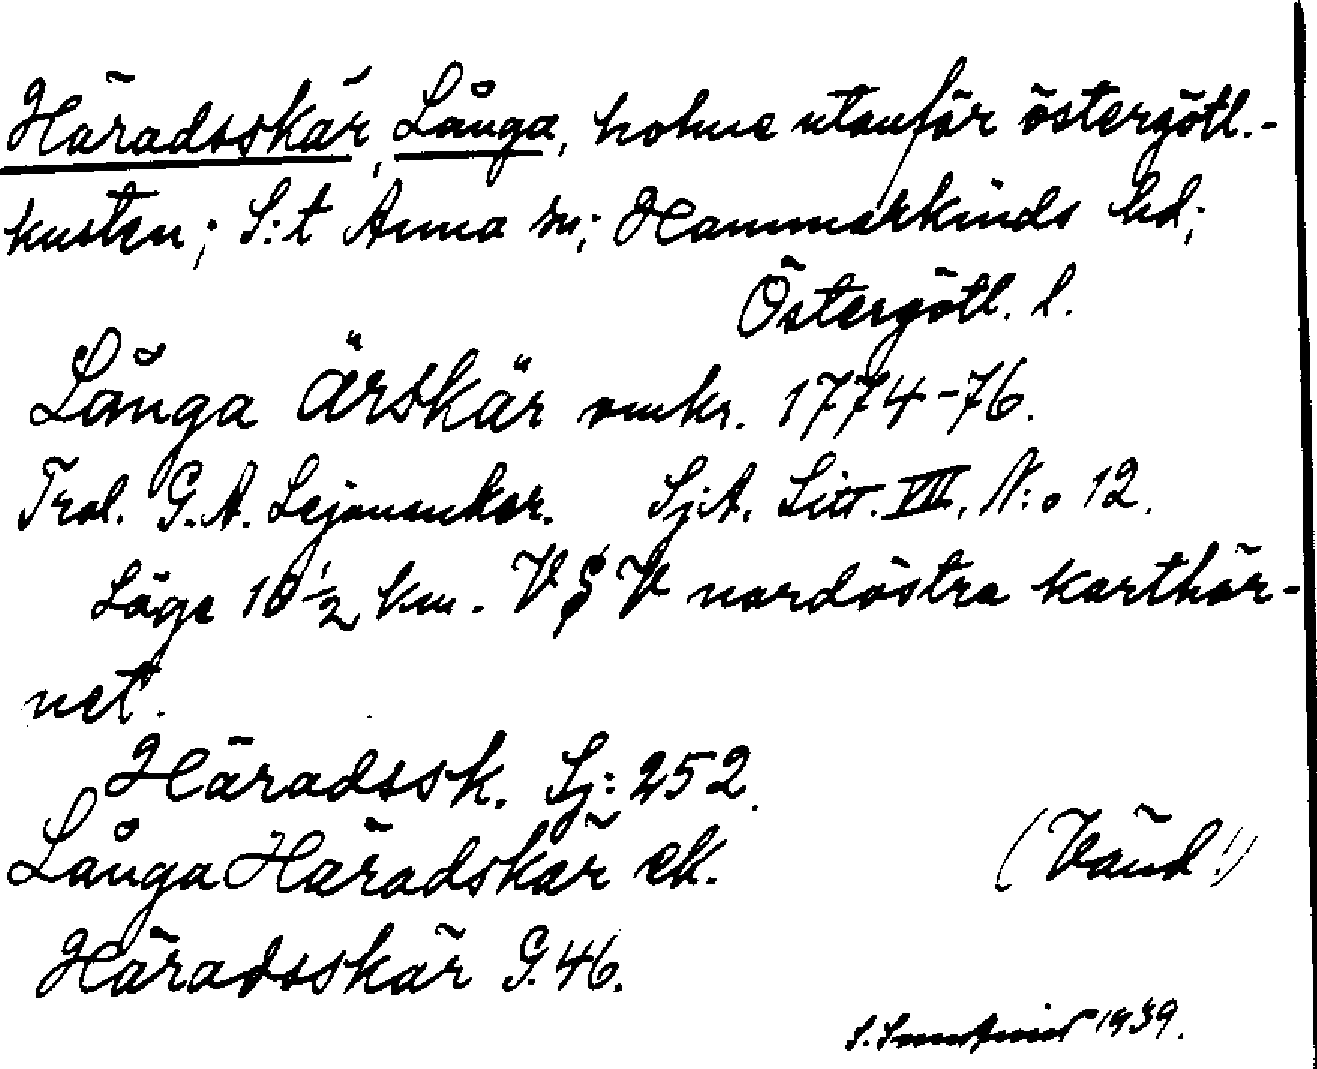 Häradsskär, Långa, holme utanför östergötl.-
kusten; S:t Anna sn; Hammarkinds hd;
Östergötl. l.
Långa ärskär omkr. 1774-76.
Trol. G. A. Lejonanckar. Sj:A. Litt. VII, N:o 12.
Läge 10 1/2 km. V S V nordöstra karthör-
net.
Häradssk. Sj: 252.
Långa Häradskär ek.
(Vänd!)
Häradsskär G. 46.
S. 1939.